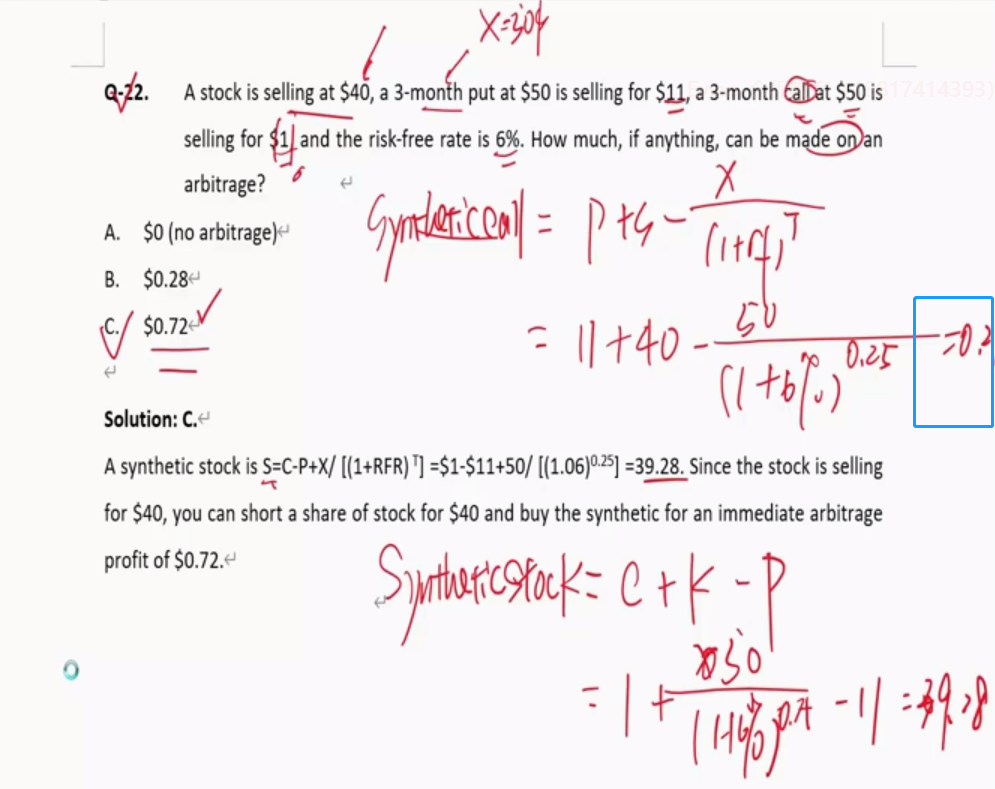 X=50
Q-22. A stock is selling at $40, a 3-month put at $50 is selling for $11, a 3-month call at $50 is
selling for $1, and the risk-free rate is 6%. How much, if anything, can be made on an
arbitrage?
A. $0 (no arbitrage)
B. $0.28
C. $0.72
Synthetic call = P+S - X/(1+rf)^T
= 11+40 - 50/(1+6%)^0.25 =0.
Solution: C.
A synthetic stock is S=C-P+X/ [(1+RFR) ᵀ] =$1-$11+50/ [(1.06)⁰·²⁵] =39.28. Since the stock is selling
for $40, you can short a share of stock for $40 and buy the synthetic for an immediate arbitrage
profit of $0.72.
Synthetic stock = C + K - P
= 1 + 50/(1+6%) - 11 = 39.28